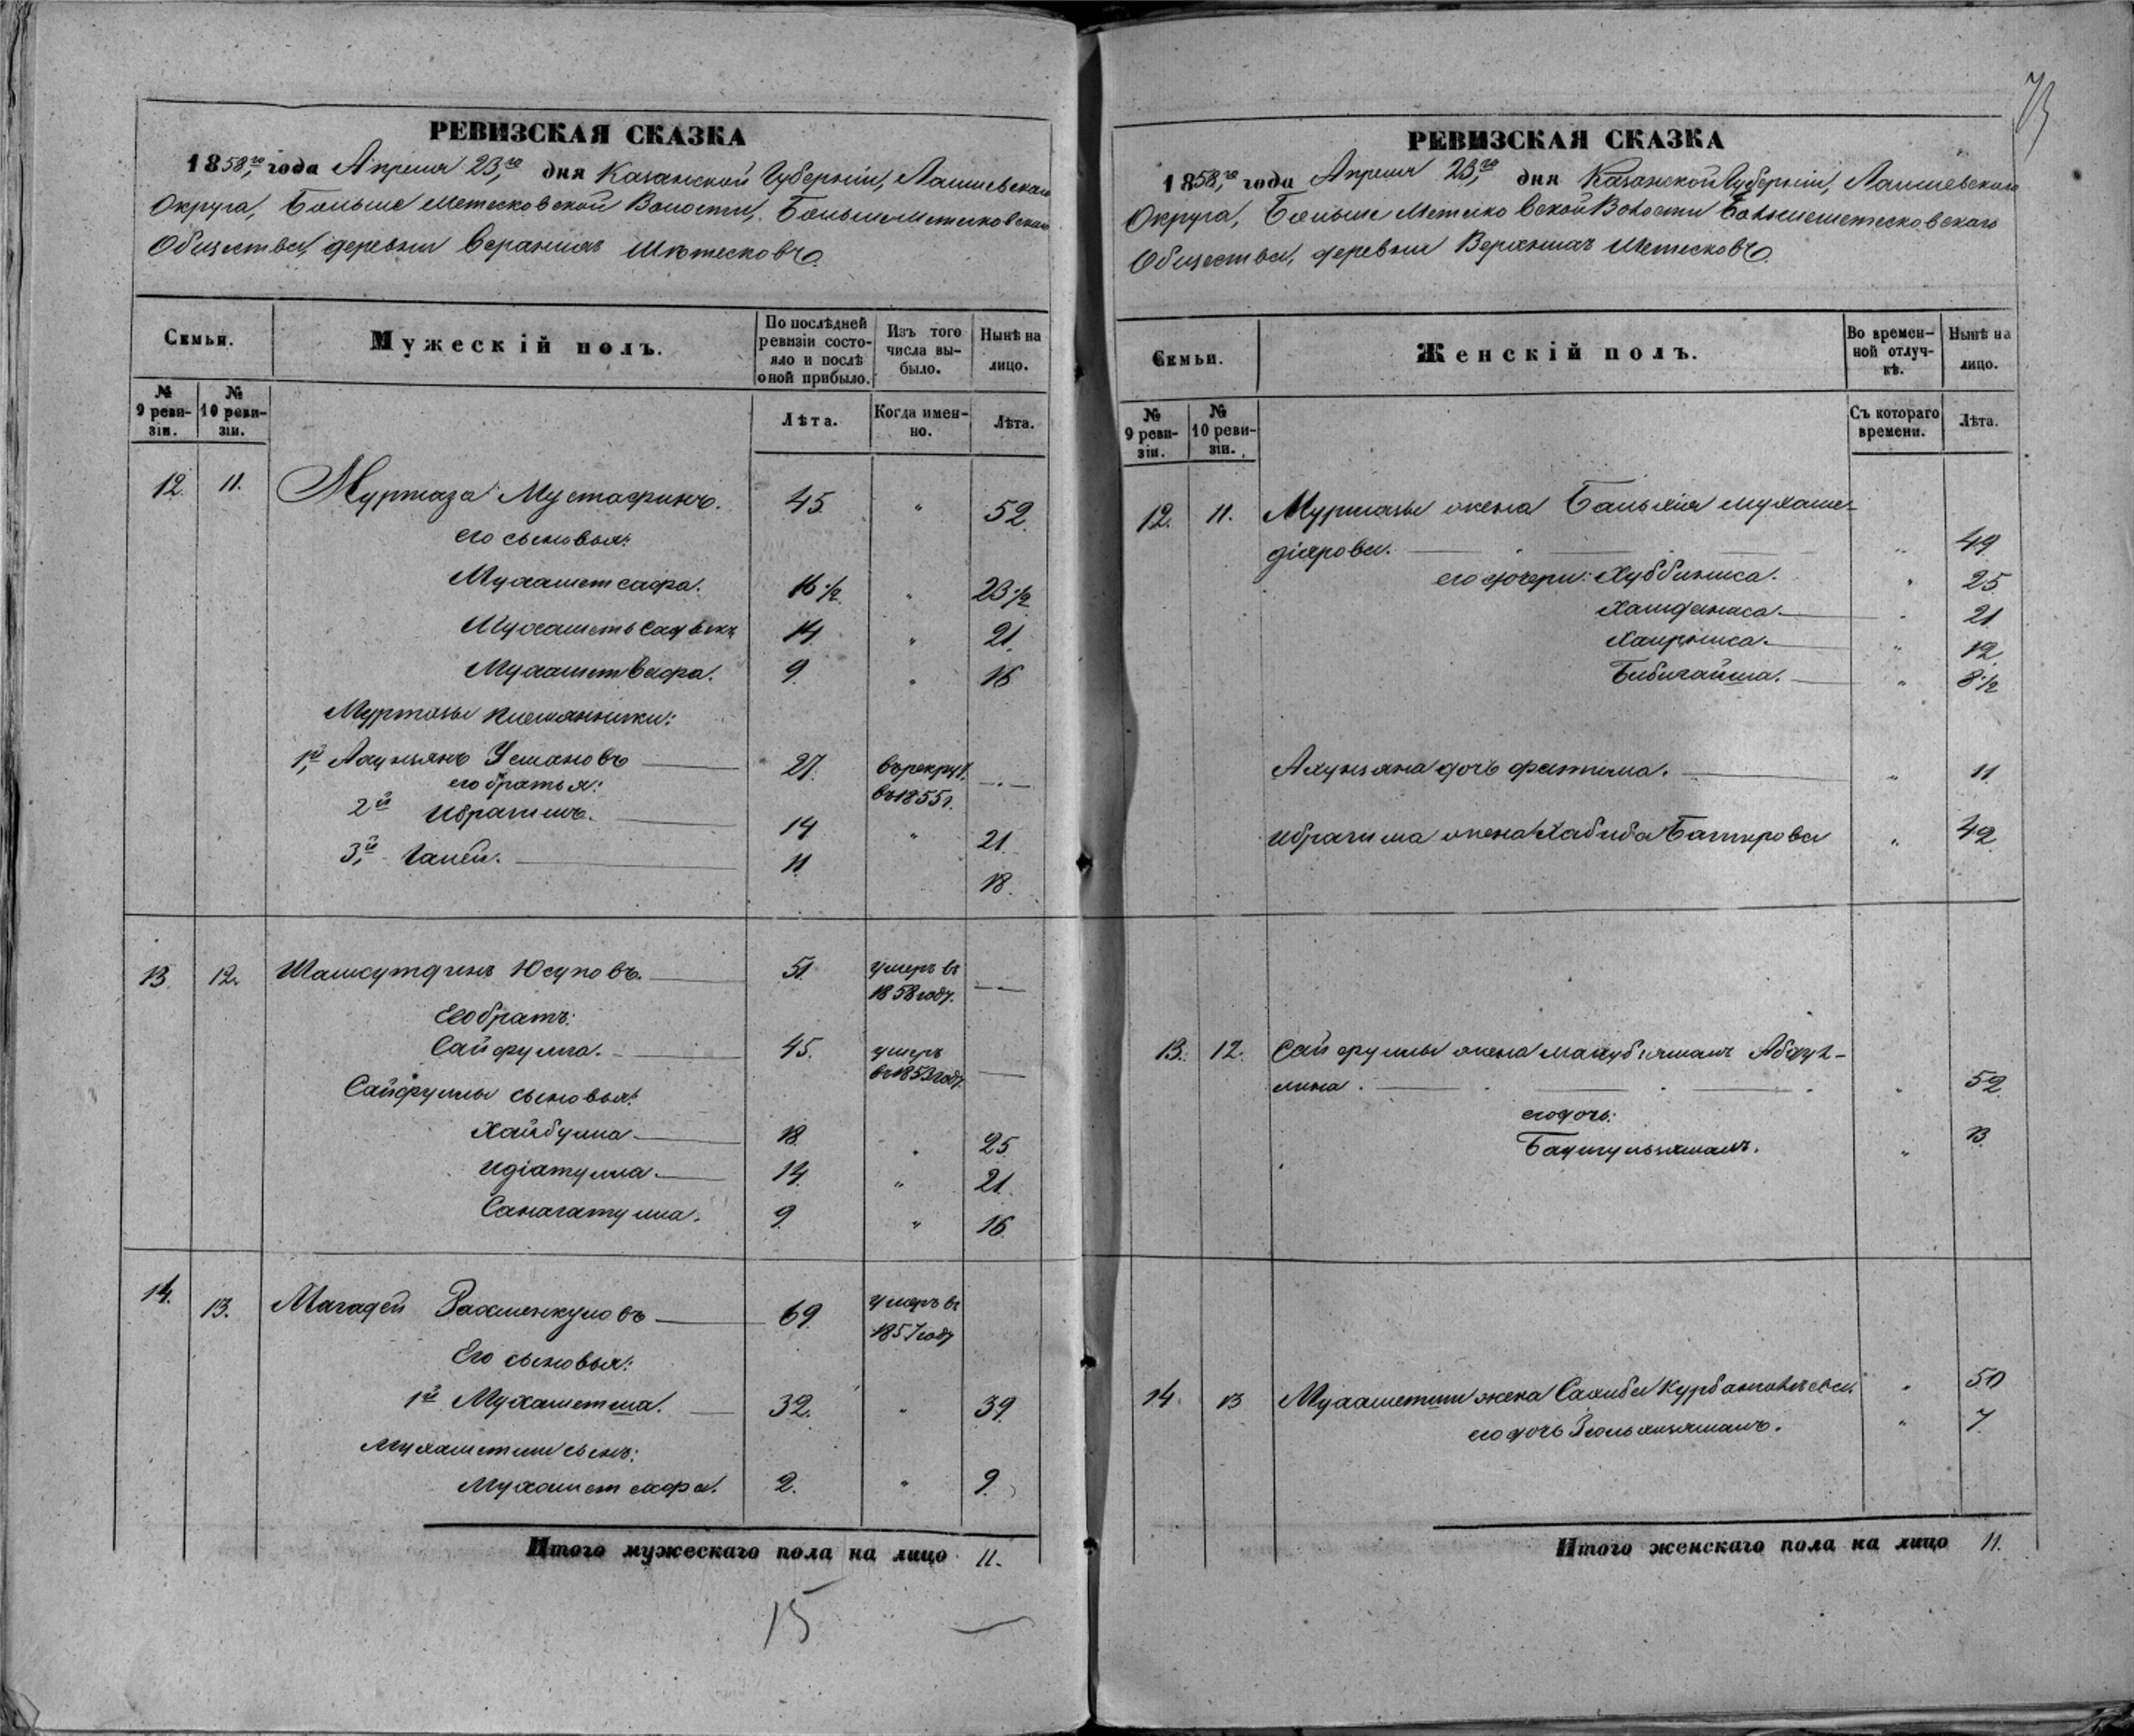 73
РЕВИЗСКАЯ СКАЗКА
1858,го года Апреля 23,го дня Казанской Губерніи, Лаишевскаго
Округа, Больше Метесковской Волости, Большеметесковскаго
Общества, деревни Верхнихъ Метесковъ.
Семьи.
Мужескій полъ.
По послѣдней ревизіи состояло и послѣ оной прибыло.
Изъ того числа выбыло.
Нынѣ на лицо.
№ 9 ревизіи.
№ 10 ревизіи.
Лѣта.
Когда именно.
Лѣта.
12. 11. Муртаза Мустафинъ. 45. " 52.
его сыновья:
Мухаметсафа. 16 1/2. " 23 1/2
Мухаметь Садыкъ 14. " 21.
Мухаметвафа. 9. " 16
Муртазы племянники:
1,й Ахунзянъ Усмановъ 27. въ рекрут. въ 1855 г. —
его братья:
2й Ибрагимъ. 14 " 21.
3,й Ганей. 11. 18.
13. 12. Шамсутдинъ Юсуповъ. 51. умеръ въ 1858 году. —
Его братъ:
Сайфулла. 45. умеръ въ 1853 году —
Сайфуллы сыновья:
Хайбулла 18. " 25.
Идіатулла. 14. " 21.
Санагатулла. 9. " 16.
14. 13. Магадей Рахманкуловъ 69. умеръ въ 1857 году
Его сыновья:
1й Мухаметша. 32. " 39.
Мухаметши сынъ:
Мухамет сафа. 2. " 9.
Итого мужескаго пола на лицо 11.
15
РЕВИЗСКАЯ СКАЗКА
1858,го года Апреля 23,го дня Казанской Губерніи, Лаишевскаго
Округа, Больше Метесковской Волости Большеметесковскаго
Общества, деревни Верхнихъ Метесковъ.
Семьи.
Женскій полъ.
Во временной отлучкѣ.
Нынѣ на лицо.
№ 9 ревизіи.
№ 10 ревизіи.
Съ котораго времени.
Лѣта.
12. 11. Муртазы жена Бальхия Мухаме-
діярова. " 49.
его дочери: Хуббиниса. " 25
Хамдениса. " 21
Хаирниса. " 12.
Бибигайша. " 8 1/2
Ахунзяна дочь Фатима. " 11.
Ибрагима жена Хабиба Батырова " 42.
13. 12. Сайфуллы жена Махубзямалъ Абдул-
лина. " 52.
его дочь:
Бадигульзямалъ. " 13.
14. 13 Мухаметши жена Сахиба Курбангалеева. " 50
его дочь Зюльхизямалъ. " 7.
Итого женскаго пола на лицо 11.